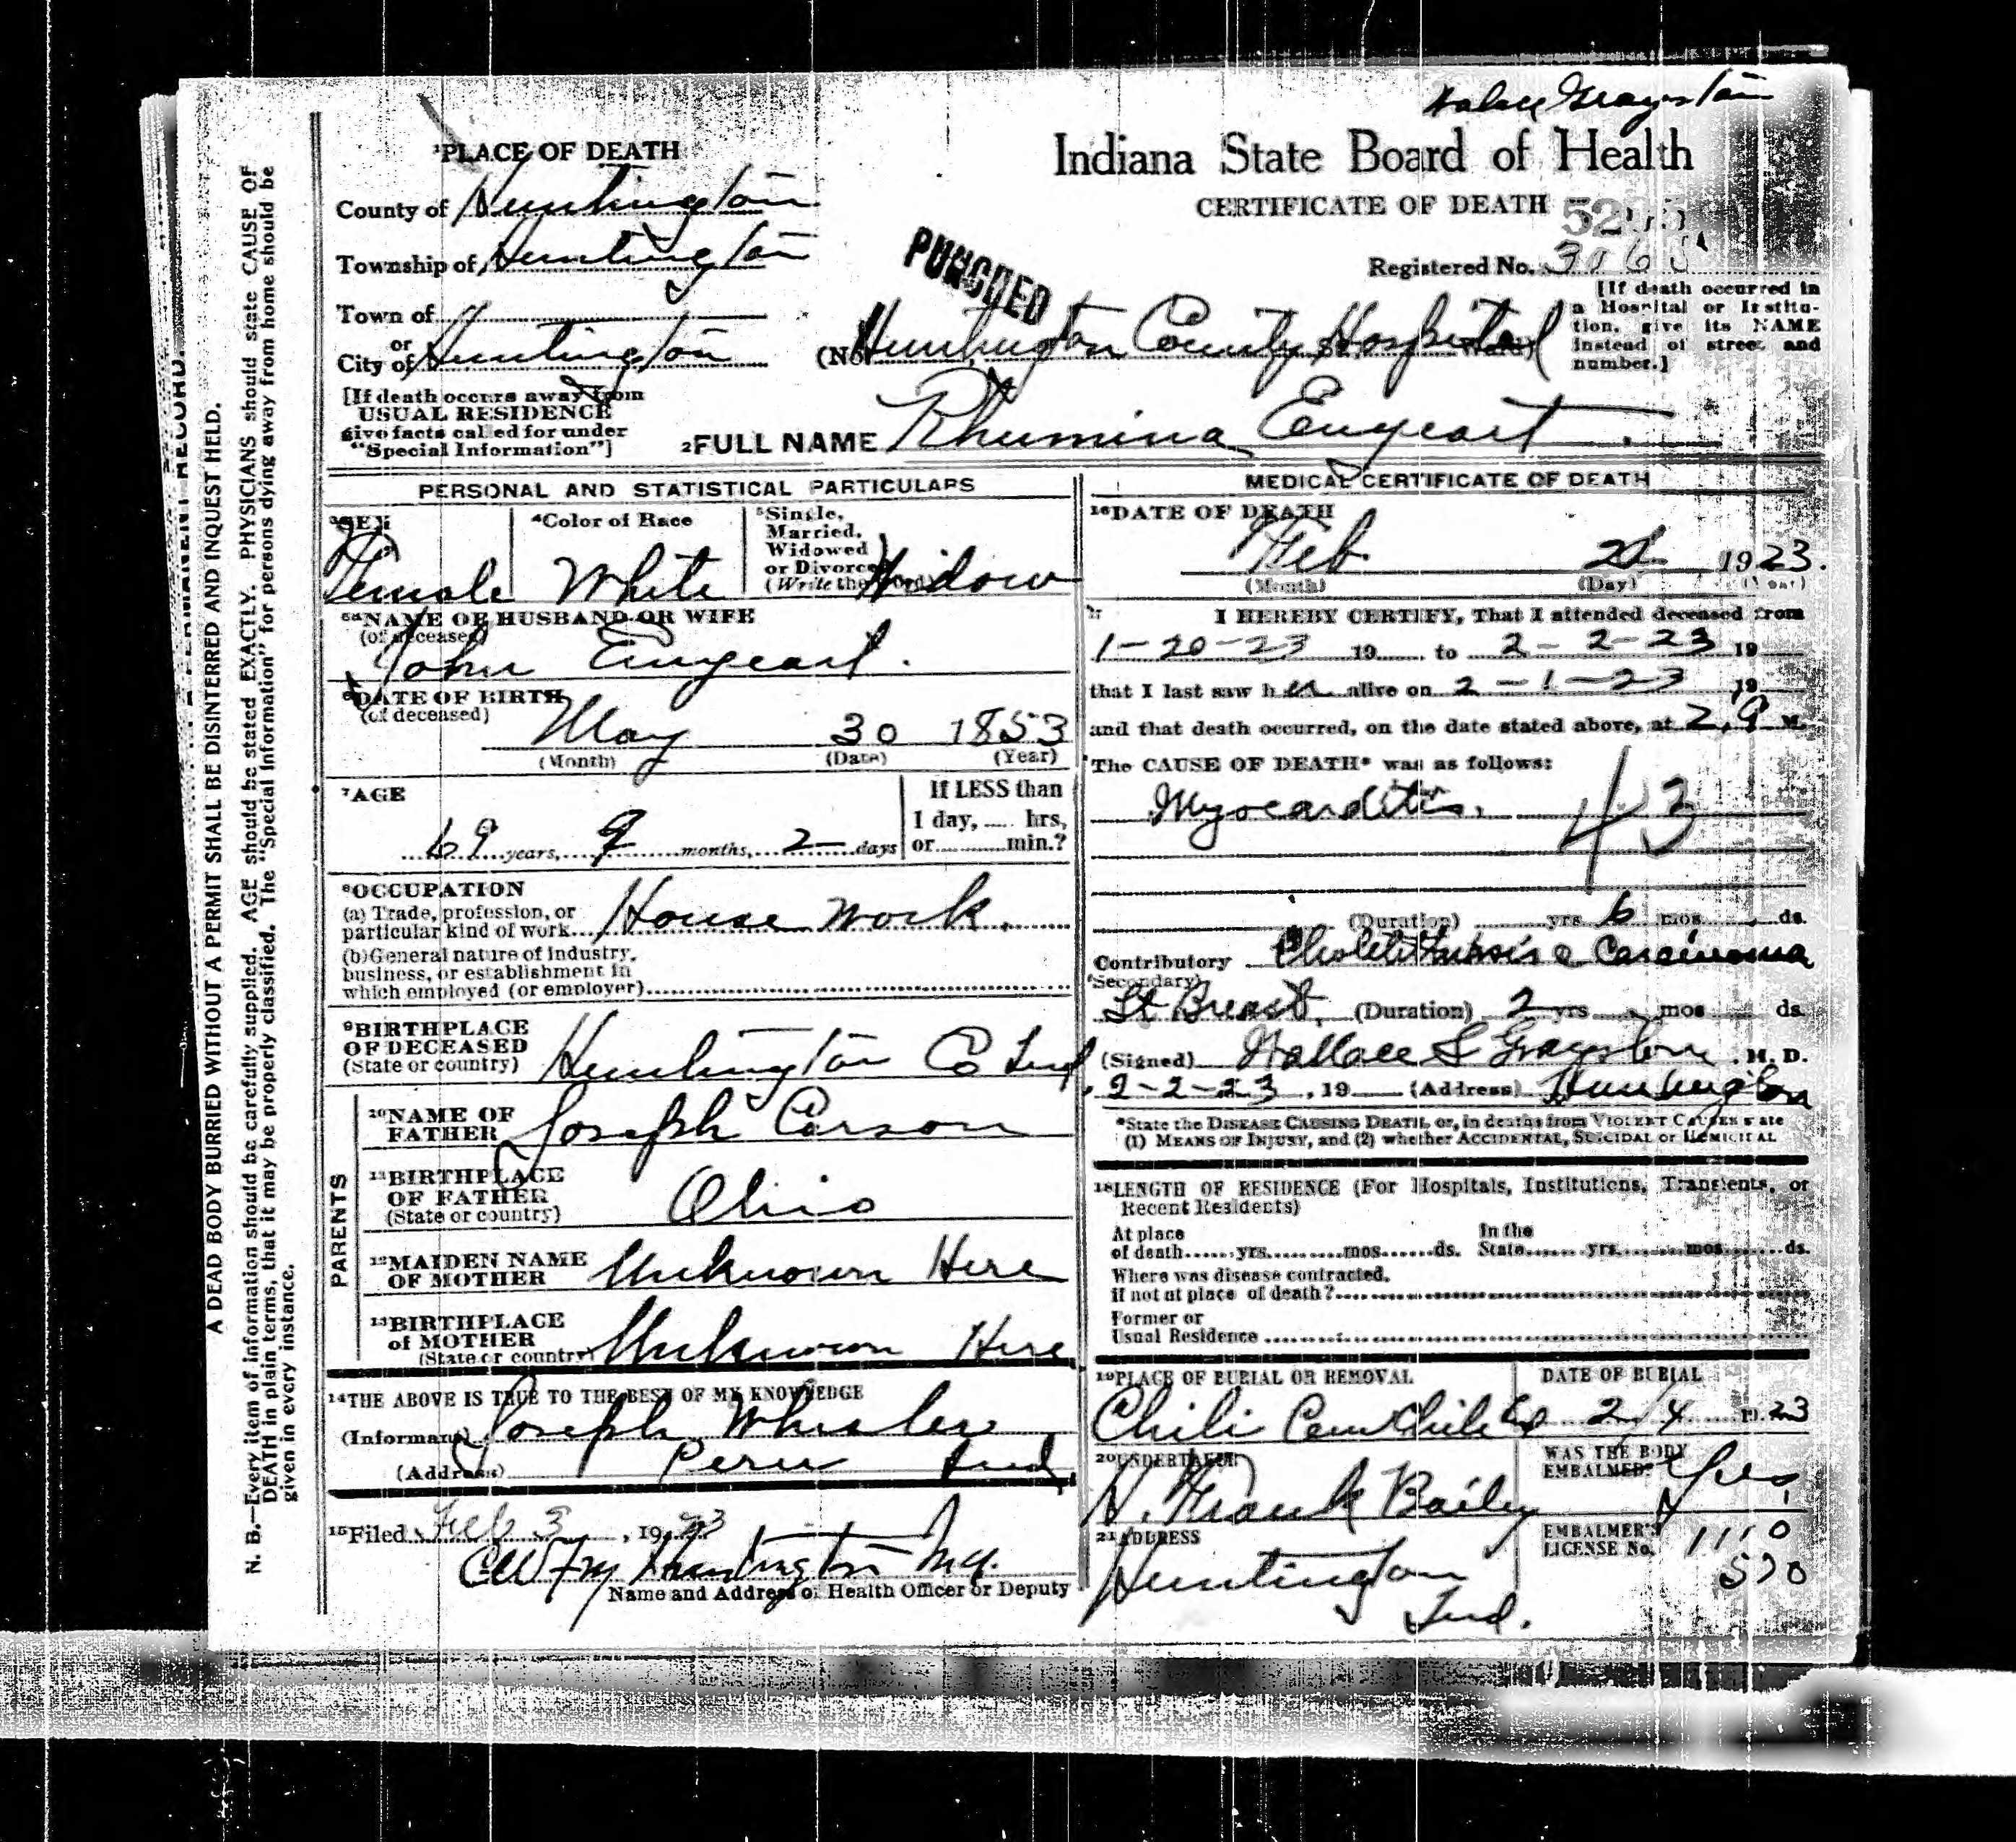 ¹PLACE OF DEATH
County of Huntington
Township of Huntington
Town of
or
City of Huntington
[If death occurs away from
USUAL RESIDENCE
give facts called for under
"Special Information"]
Indiana State Board of Health
CERTIFICATE OF DEATH
Registered No.
PUNCHED
[If death occurred in
a Hospital or Institu-
tion, give its NAME
instead of street and
number.]
(No. Huntington County Hospital St. Ward)
²FULL NAME Rhumina Enyeart
PERSONAL AND STATISTICAL PARTICULARS
³SEX
Female
⁴Color of Race
White
⁵Single,
Married,
Widowed
or Divorced
(Write the word)
Widow
⁵ᵃNAME OF HUSBAND OR WIFE
(of deceased)
John Enyeart.
⁶DATE OF BIRTH
(of deceased)
May 30 1853
(Month) (Date) (Year)
⁷AGE
69 years, 9 months, 2 days
If LESS than
1 day, ..... hrs,
or ..... min.?
⁸OCCUPATION
(a) Trade, profession, or
particular kind of work House work.
(b) General nature of industry,
business, or establishment in
which employed (or employer)
⁹BIRTHPLACE
OF DECEASED
(State or country) Huntington Co Ind.
PARENTS
¹⁰NAME OF
FATHER Joseph Carson
¹¹BIRTHPLACE
OF FATHER
(State or country) Ohio
¹²MAIDEN NAME
OF MOTHER Unknown Here
¹³BIRTHPLACE
of MOTHER
(State or country) Unknown Here
¹⁴THE ABOVE IS TRUE TO THE BEST OF MY KNOWLEDGE
(Informant) Joseph Whisler
(Address) Peru Ind.
¹⁵Filed Feb 3, 1923
Huntington
Name and Address of Health Officer or Deputy
MEDICAL CERTIFICATE OF DEATH
¹⁶DATE OF DEATH
Feb 1923.
(Month) (Day) (Year)
¹⁷ I HEREBY CERTIFY, That I attended deceased from
1-20-23 19 to 2-2-23 19
that I last saw her alive on 2-1-23 19
and that death occurred, on the date stated above, at M.
The CAUSE OF DEATH* was as follows:
Myocarditis.
43
(Duration) yrs 6 mos ds.
Contributory Cholelithiasis & Carcinoma
(Secondary)
Lt Breast. (Duration) 2 yrs mos ds.
(Signed) Wallace S Grayston M. D.
2-2-23, 19 (Address) Huntington
*State the DISEASE CAUSING DEATH, or, in deaths from VIOLENT CAUSES state
(1) MEANS OF INJURY, and (2) whether ACCIDENTAL, SUICIDAL or HOMICIDAL
¹⁸LENGTH OF RESIDENCE (For Hospitals, Institutions, Transients, or
Recent Residents)
At place In the
of death yrs mos ds. State yrs mos ds.
Where was disease contracted,
if not at place of death?
Former or
Usual Residence
¹⁹PLACE OF BURIAL OR REMOVAL
Chili Cem Chili
DATE OF BURIAL
2/4 1923
²⁰UNDERTAKER
H. Frank Bailey
WAS THE BODY
EMBALMED? Yes
²¹ADDRESS
Huntington
Ind.
EMBALMER'S
LICENSE No. 1110
570
A DEAD BODY BURRIED WITHOUT A PERMIT SHALL BE DISINTERRED AND INQUEST HELD.
N. B.—Every item of information should be carefully supplied. AGE should be stated EXACTLY. PHYSICIANS should state CAUSE OF
DEATH in plain terms, that it may be properly classified. The "Special Information" for persons dying away from home should be
given in every instance.